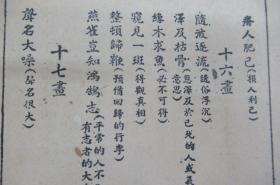 瘠人肥己(損人利己)
十六畫
隨波逐流(隨俗浮沉)
澤及枯骨(恩澤及於已死的人或甚
意思)
緣木求魚(必不可得)
窺見一斑(得觀真相)
整頓歸鞭(預備回歸的行李)
燕雀豈知鴻鵠志(平常的人不
有志者的大
十七畫
聲名大噪(名聲很大)